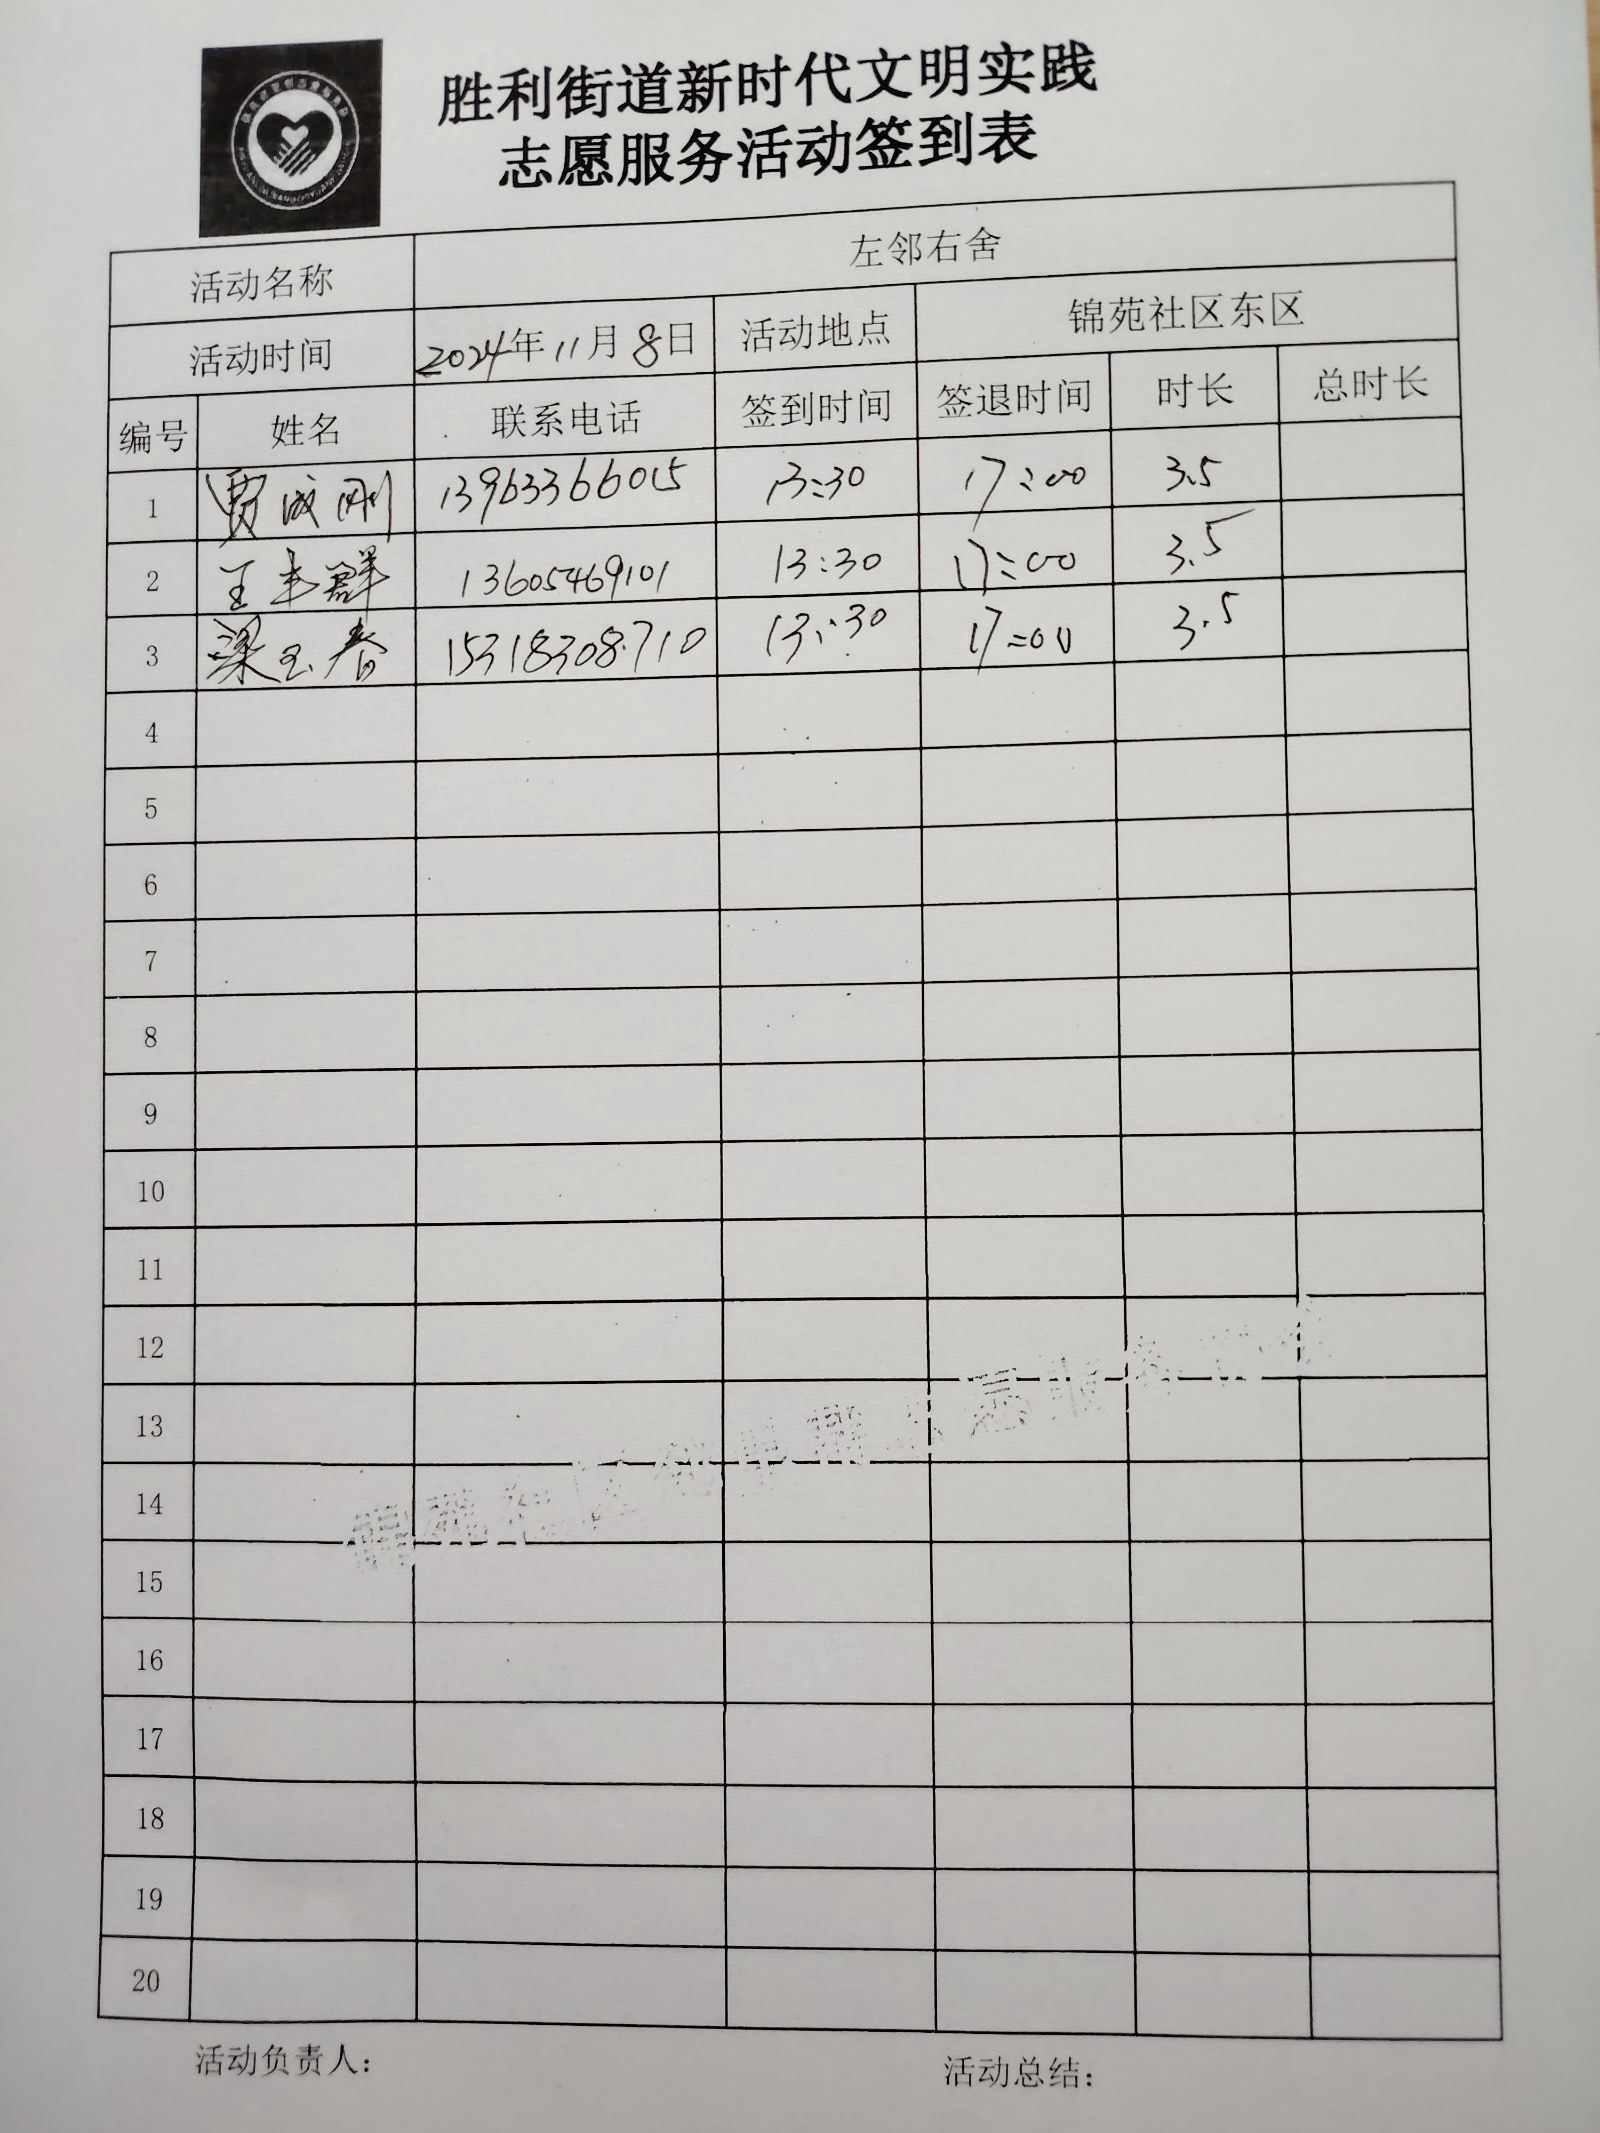 胜利街道新时代文明实践
志愿服务活动签到表
活动名称 左邻右舍
活动时间 2024年11月8日 活动地点 锦苑社区东区
编号 姓名 联系电话 签到时间 签退时间 时长 总时长
1 贾成刚 13963366015 13:30 17:00 3.5
2 王丰群 13605469101 13:30 17:00 3.5
3 梁玉春 15318308710 13:30 17:00 3.5
4
5
6
7
8
9
10
11
12
13
14
15
16
17
18
19
20
活动负责人: 活动总结: